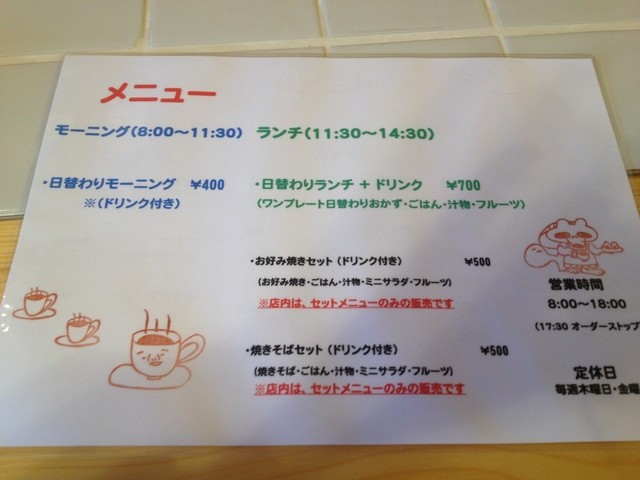 メニュー
モーニング(8:00～11:30)
ランチ(11:30～14:30)
・日替わりモーニング ¥400
※(ドリンク付き)
・日替わりランチ + ドリンク ¥700
(ワンプレート日替わりおかず・ごはん・汁物・フルーツ)
・お好み焼きセット(ドリンク付き) ¥500
(お好み焼き・ごはん・汁物・ミニサラダ・フルーツ)
※店内は、セットメニューのみの販売です
・焼きそばセット(ドリンク付き) ¥500
(焼きそば・ごはん・汁物・ミニサラダ・フルーツ)
※店内は、セットメニューのみの販売です
営業時間
8:00～18:00
(17:30 オーダーストップ
定休日
毎週木曜日・金曜